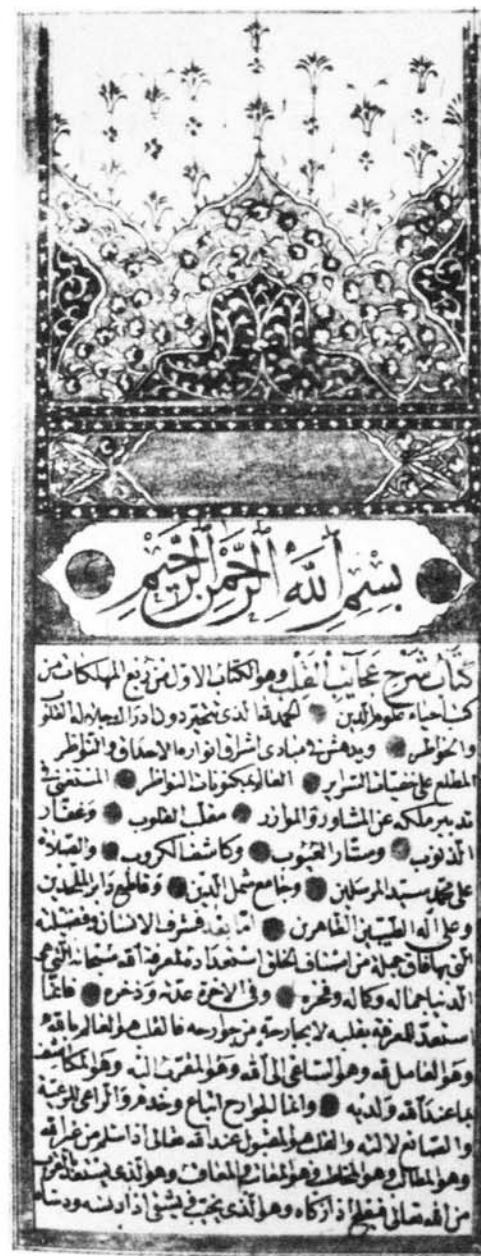 بِسْمِ اللَّهِ الرَّحْمٰنِ الرَّحِيمِ
كتاب شرح عجايب القلب وهو الكتاب الاول من ربع المهلكات من
كتب احياء علوم الدين الحمد لله الذى تتحير دون ادراك جلاله القلوب
والخواطر ويدهش فى مبادى اشراق انواره الاحداق والنواظر
المطلع على خفيات السراير العالم بمكنونات الضماير المستغنى فى
تدبير ملكه عن المشاور والموازر مقلب القلوب وغفار
الذنوب وستار العيوب وكاشف الكروب والصلاة
على محمد سيد المرسلين وجامع شمل الدين وقاطع دابر الملحدين
وعلى آله الطيبين الطاهرين اما بعد فشرف الانسان وفضيلته
التى بها فاق جملة من اصناف الخلق استعداده لمعرفة الله سبحانه التى هى
الدنيا جماله وكماله وفخره وفى الاخرة عدته وذخره فانما
استعد للمعرفة بقلبه لا بجارحة من جوارحه فالقلب هو العالم بالله
وهو العامل لله وهو الساعى الى الله وهو المقرب اليه وهو المكاشف
بما عند الله ولديه وانما الجوارح اتباع وخدم
والقلب هو المقبول عند الله تعالى اذا سلم من غير الله
وهو المطالب وهو المخاطب وهو المعاتب والمعاقب وهو الذى يسعد بالقرب
من الله تعالى فيفلح اذا زكاه وهو الذى يخيب ويشقى اذا دنسه ودساه